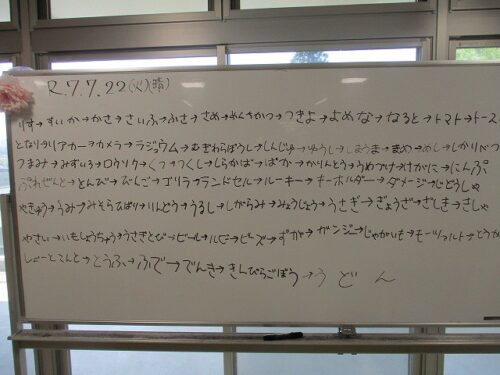 R.7.7.22(火)(晴)
りす→すいか→かさ→さいふ→ふさ→さめ→めんきかつ→つきよ→よめな→なると→トマト→トース
となり→リアカー→カメラ→ラジュウム→むぎわらぼうし→しんじゅ→ゆうし→しまうま→まめ→めし→しかりべつ
つまみ→みずいろ→ロウソク→くつ→つくし→しらかば→ばか→かりんとう→うめづけ→けがに→にんぷ
ぷれぜんと→とんび→びんご→ゴリラ→ランドセル→ルーキー→キーホルダー→ダメージ→じどうしゃ
やきゅう→うみ→みそらひばり→りんどう→うるし→しがらみ→みょうじょう→うさぎ→ぎょうざ→ざしき→きしゃ
やさい→いもしょうちゅう→うさぎとび→ビール→ルビー→ビーズ→ずが→ガンジー→じゃがいも→モーツァルト→とうが
しょーとこんと→とうふ→ふで→でんき→きんぴらごぼう→うどん